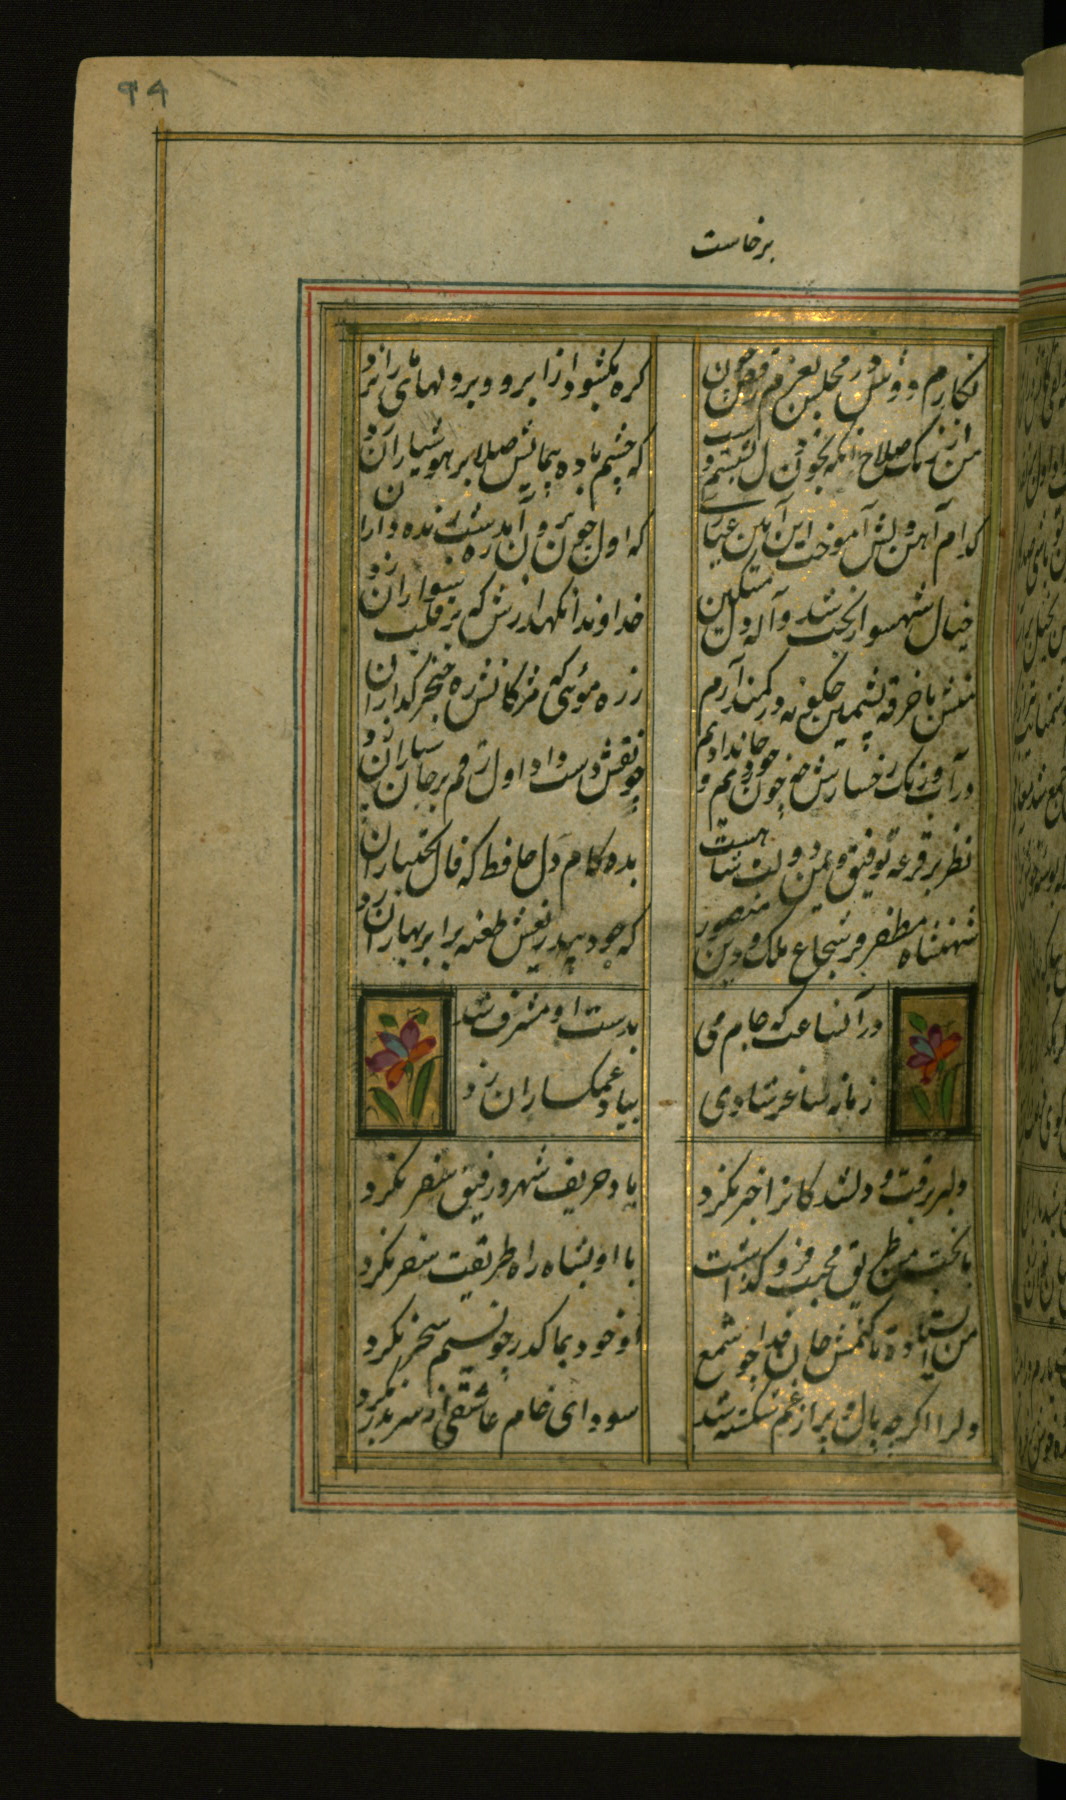 ۹۴
برخاست
نکارم دوش در مجلس بعزم رقص چون برخاست
کره بکشود از ابرو و بر دلهای یاران زد
من از رنک صلاح آنکه بخون دل بشستم دست
که چشم باده پیمایش صلا بر هوشیاران زد
کدام آهن دلش آموخت این آیین عیاری
که اول چون برون آمد ره شب زنده داران زد
خیال شهسواری بخت و شد آله دل مسکین
خداوندا نکهدارش که بر قلب سواران زد
منش با خرقه پشمین چکونه در کمند آرم
زره موئی که مژکانش ره خنجر کذاران زد
در آب و رنک رخسارش چه خون خوردیم و جان دادیم
چو نقش دست داد اول رقم بر جان سپاران زد
نظر بر قرعه توفیق و یمن دولت شاهست
بده کام دل حافظ که فال بختیاران زد
شهنشاه مظفر فر شجاع ملک و دین منصور
که جود بیدریغش طعنه بر ابر بهاران زد
در آن ساعت که جام می
بدست او مشرف شد
زمانه ساغر شادی
بیاد غمکساران زد
دلبر برفت و دلشدکانرا خبر نکرد
یاد حریف شهر و رفیق سفر نکرد
یا بخت من طریق محبت فرو کذاشت
یا او بشاه راه طریقت سفر نکرد
من ایستاده تا کنمش جان فدا چو شمع
او خود بما کذر چو نسیم سحر نکرد
دلرا اکرچه بال و پر از غم شکسته شد
سودای خام عاشقی از سر بدر نکرد